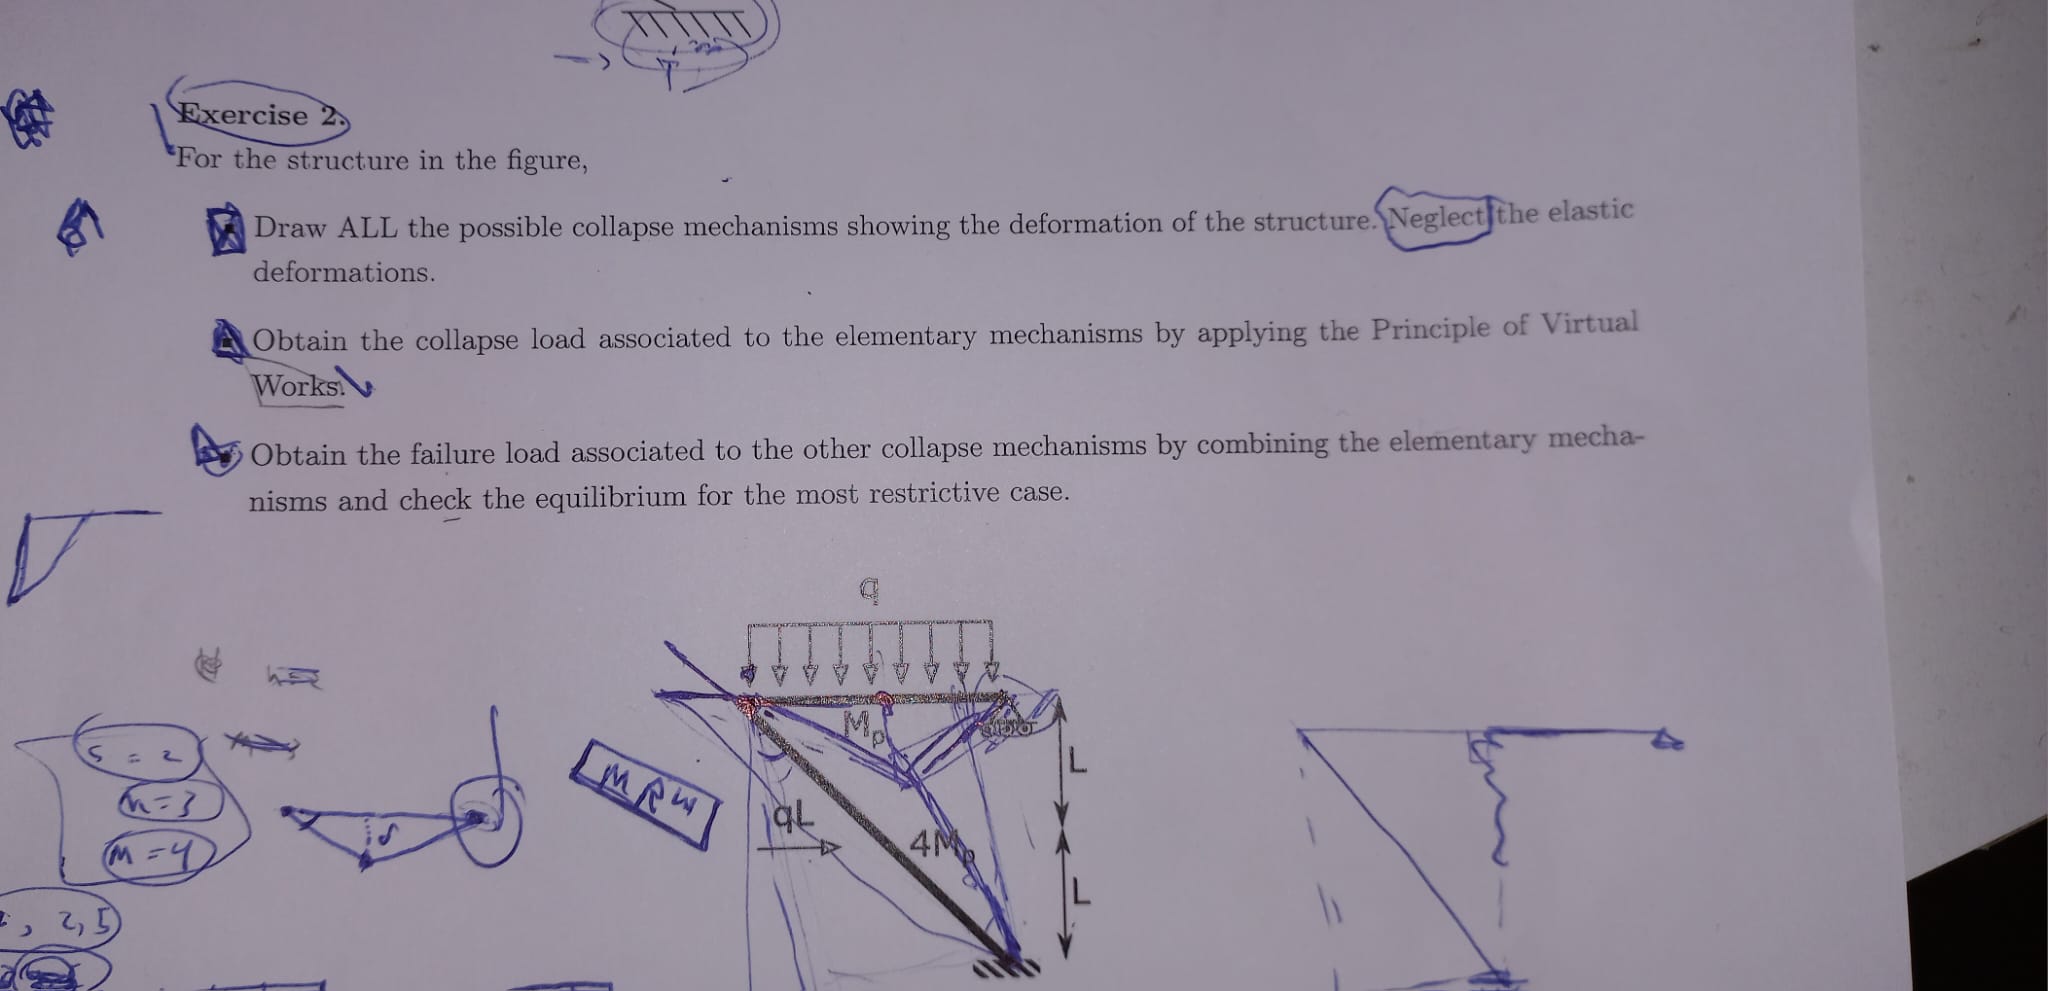 Exercise 2.
For the structure in the figure,
Draw ALL the possible collapse mechanisms showing the deformation of the structure. Neglect the elastic
deformations.
Obtain the collapse load associated to the elementary mechanisms by applying the Principle of Virtual
Works.
Obtain the failure load associated to the other collapse mechanisms by combining the elementary mecha-
nisms and check the equilibrium for the most restrictive case.
q
Mp
L
qL
4Mp
L
S = 2
n=3
m=4
δ
2,5